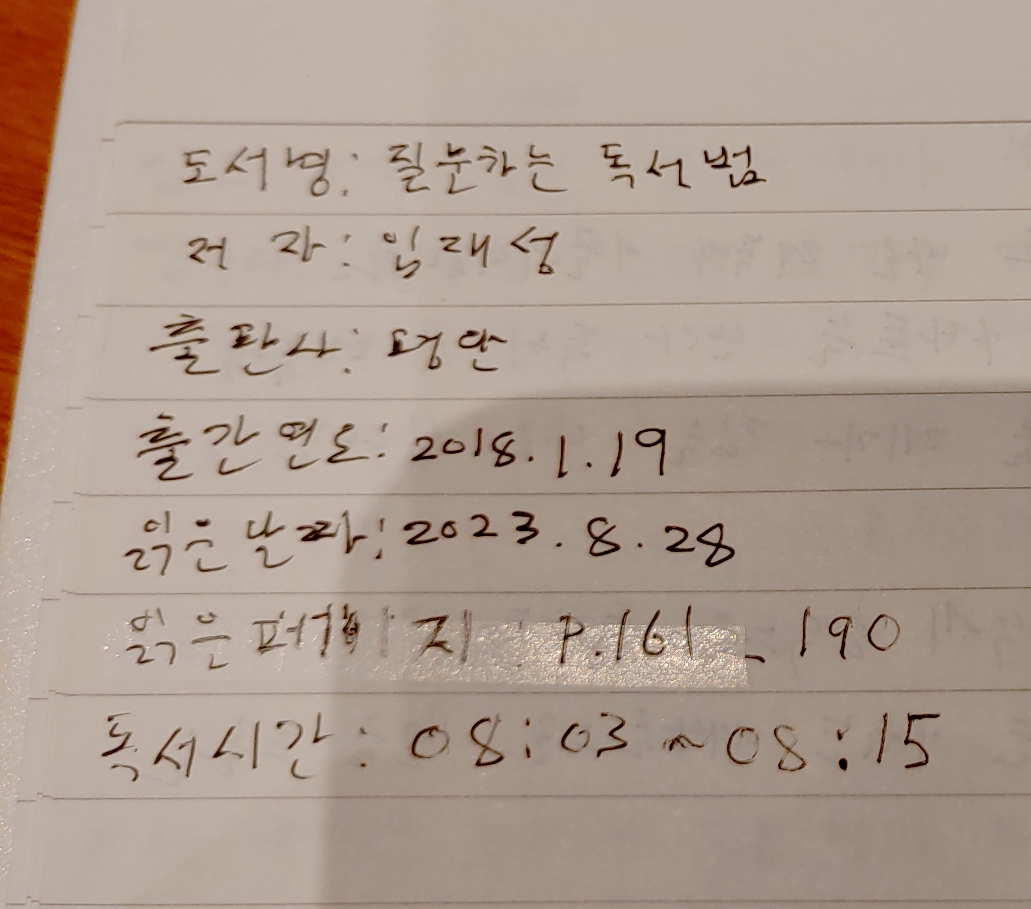 도서명: 질문하는 독서법
저 자: 임재성
출판사: 평단
출간연도: 2018.1.19
읽은날짜: 2023.8.28
읽은 페이지 : P.161 - 190
독서시간: 08:03 ~ 08:15